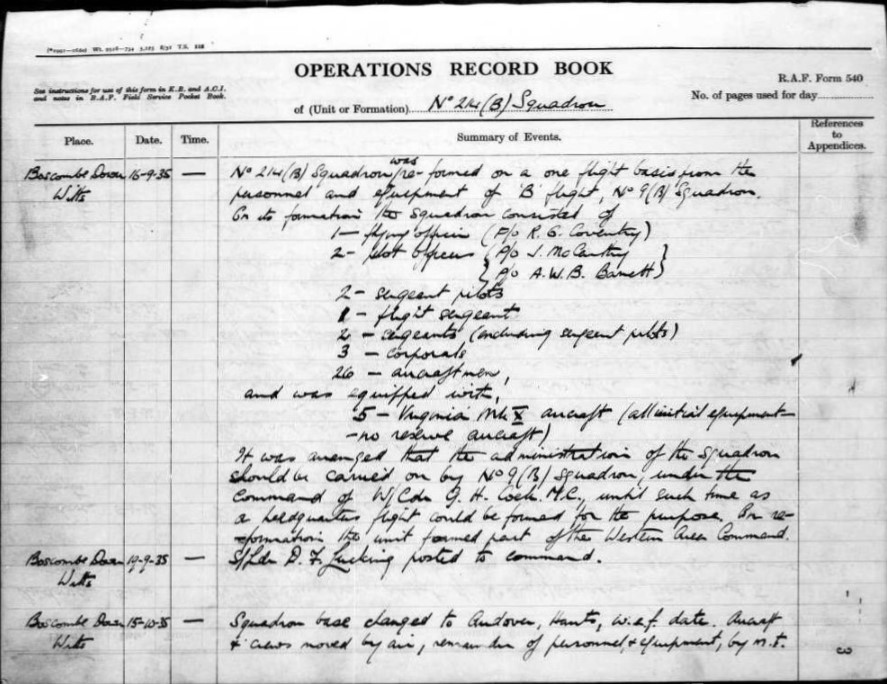 OPERATIONS RECORD BOOK
R.A.F. Form 540
See instructions for use of this form in K.R. and A.C.I.
and notes in R.A.F. Field Service Pocket Book.
of (Unit or Formation) No 214 (B) Squadron
No. of pages used for day
Place. Date. Time. Summary of Events. References to Appendices.
Boscombe Down 16-9-35 — No 214 (B) Squadron was re-formed on a one flight basis from the
Wilts personnel and equipment of 'B' flight, No 9 (B) Squadron.
On its formation the squadron consisted of
1 — flying officer (F/O R. G. Coventry)
2 — pilot officers (P/O J. McCarthy)
(P/O A.W.B. Barnett)
2 — sergeant pilots
1 — flight sergeant
2 — sergeants (including sergeant pilots)
3 — corporals
26 — aircraftmen,
and was equipped with,
5 — Virginia Mk X aircraft (all initial equipment
— no reserve aircraft)
It was arranged that the administration of the squadron
should be carried on by No 9 (B) Squadron, under the
command of W/Cdr G. H. M.C., until such time as
a headquarters flight could be formed for the purpose. On re-
formation the unit formed part of the Western Area Command.
Boscombe Down 19-9-35 — S/Ldr D. F. Lucking posted to command.
Wilts
Boscombe Down 15-10-35 — Squadron base changed to Andover, Hants, w.e.f. date. Aircraft
Wilts & crews moved by air, remainder of personnel & equipment, by M.T.